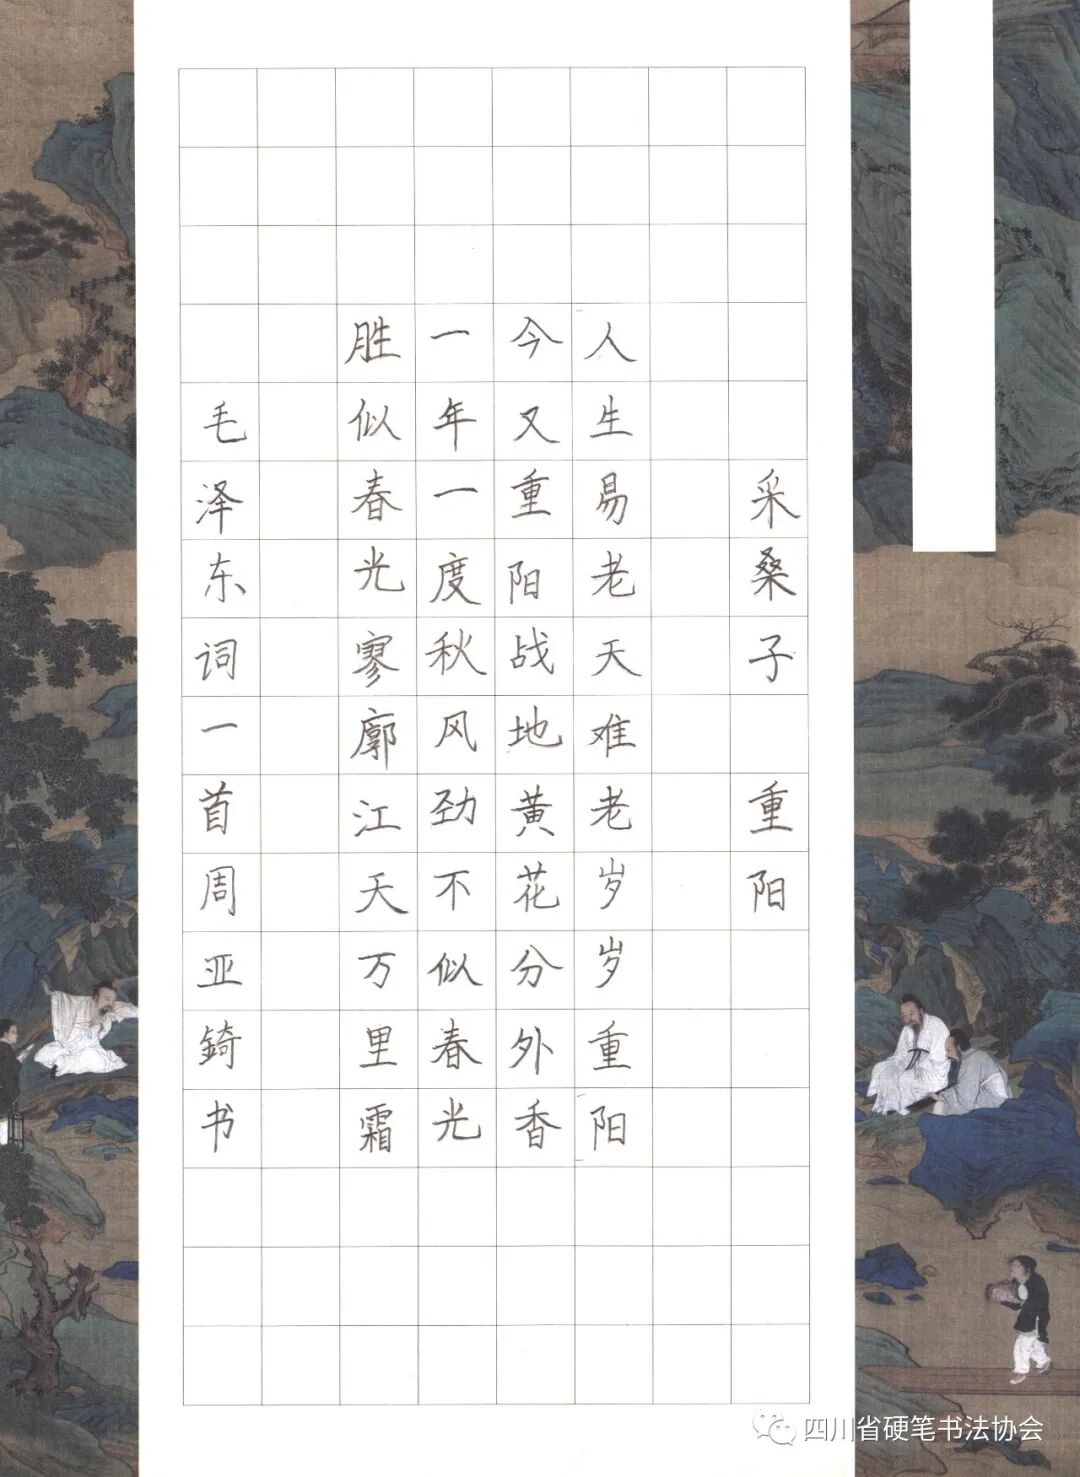 采桑子 重阳
人生易老天难老岁岁重阳
今又重阳战地黄花分外香
一年一度秋风劲不似春光
胜似春光寥廓江天万里霜
毛泽东词一首周亚錡书
四川省硬笔书法协会